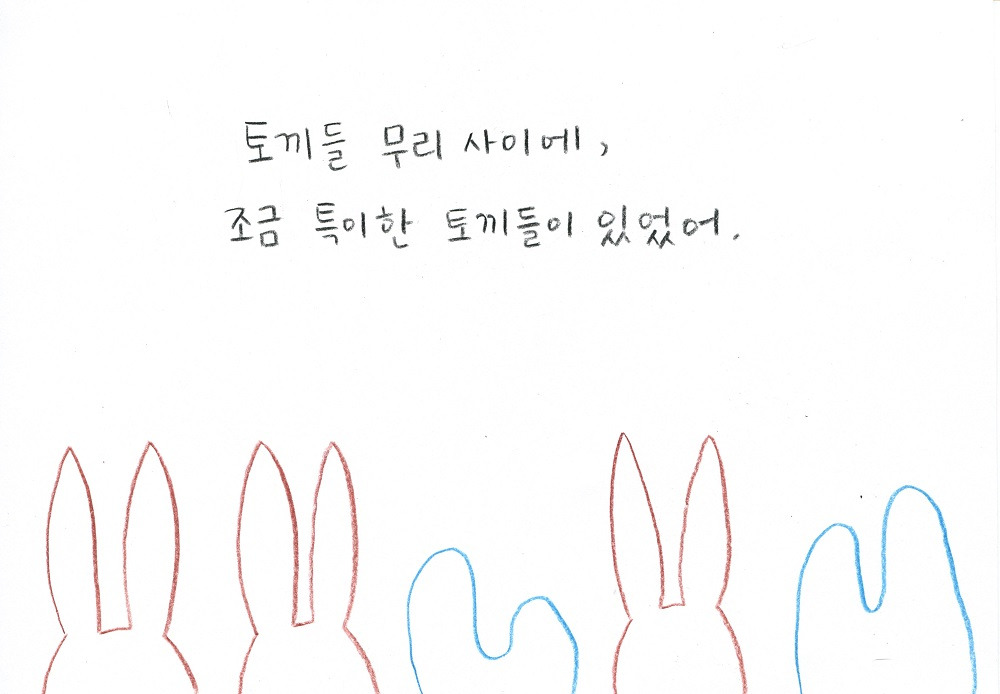 토끼들 무리 사이에,
조금 특이한 토끼들이 있었어.